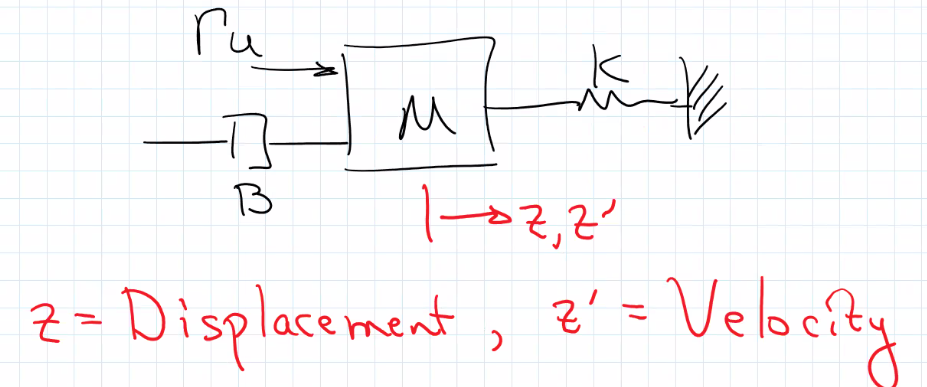 ru
K
M
B
z, z'
z = Displacement, z' = Velocity